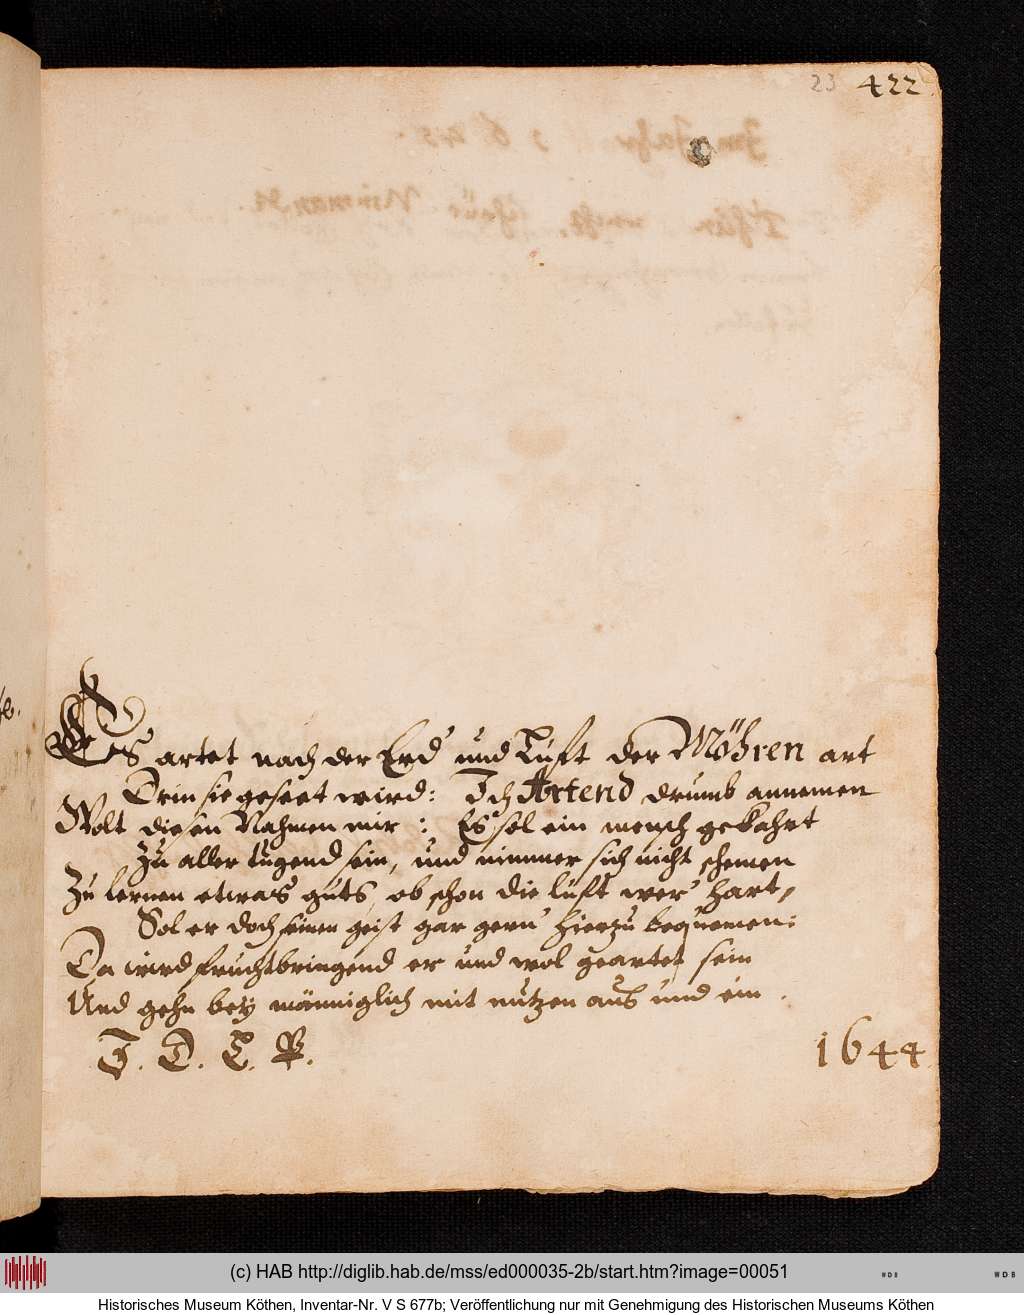 23 422
Es artet nach der Erd' und Luft der Möhren art
Drin sie geseet wird: Ich Artend drumb annemen
Wolt diesen Nahmen mir: Es sol ein mensch gekahrt
Zu aller tugend sein, und nimmer sich nicht schemen
Zu lernen etwas guts, ob schon die luft wer' hart,
Sol er doch seinen geist gar gern' hierzu bequemen:
Da wird fruchtbringend er und wol geartet sein
Und gehn bey männiglich mit nutzen aus und ein.
J. D. L. P. 1644.
(c) HAB http://diglib.hab.de/mss/ed000035-2b/start.htm?image=00051
WDB WDB
Historisches Museum Köthen, Inventar-Nr. V S 677b; Veröffentlichung nur mit Genehmigung des Historischen Museums Köthen